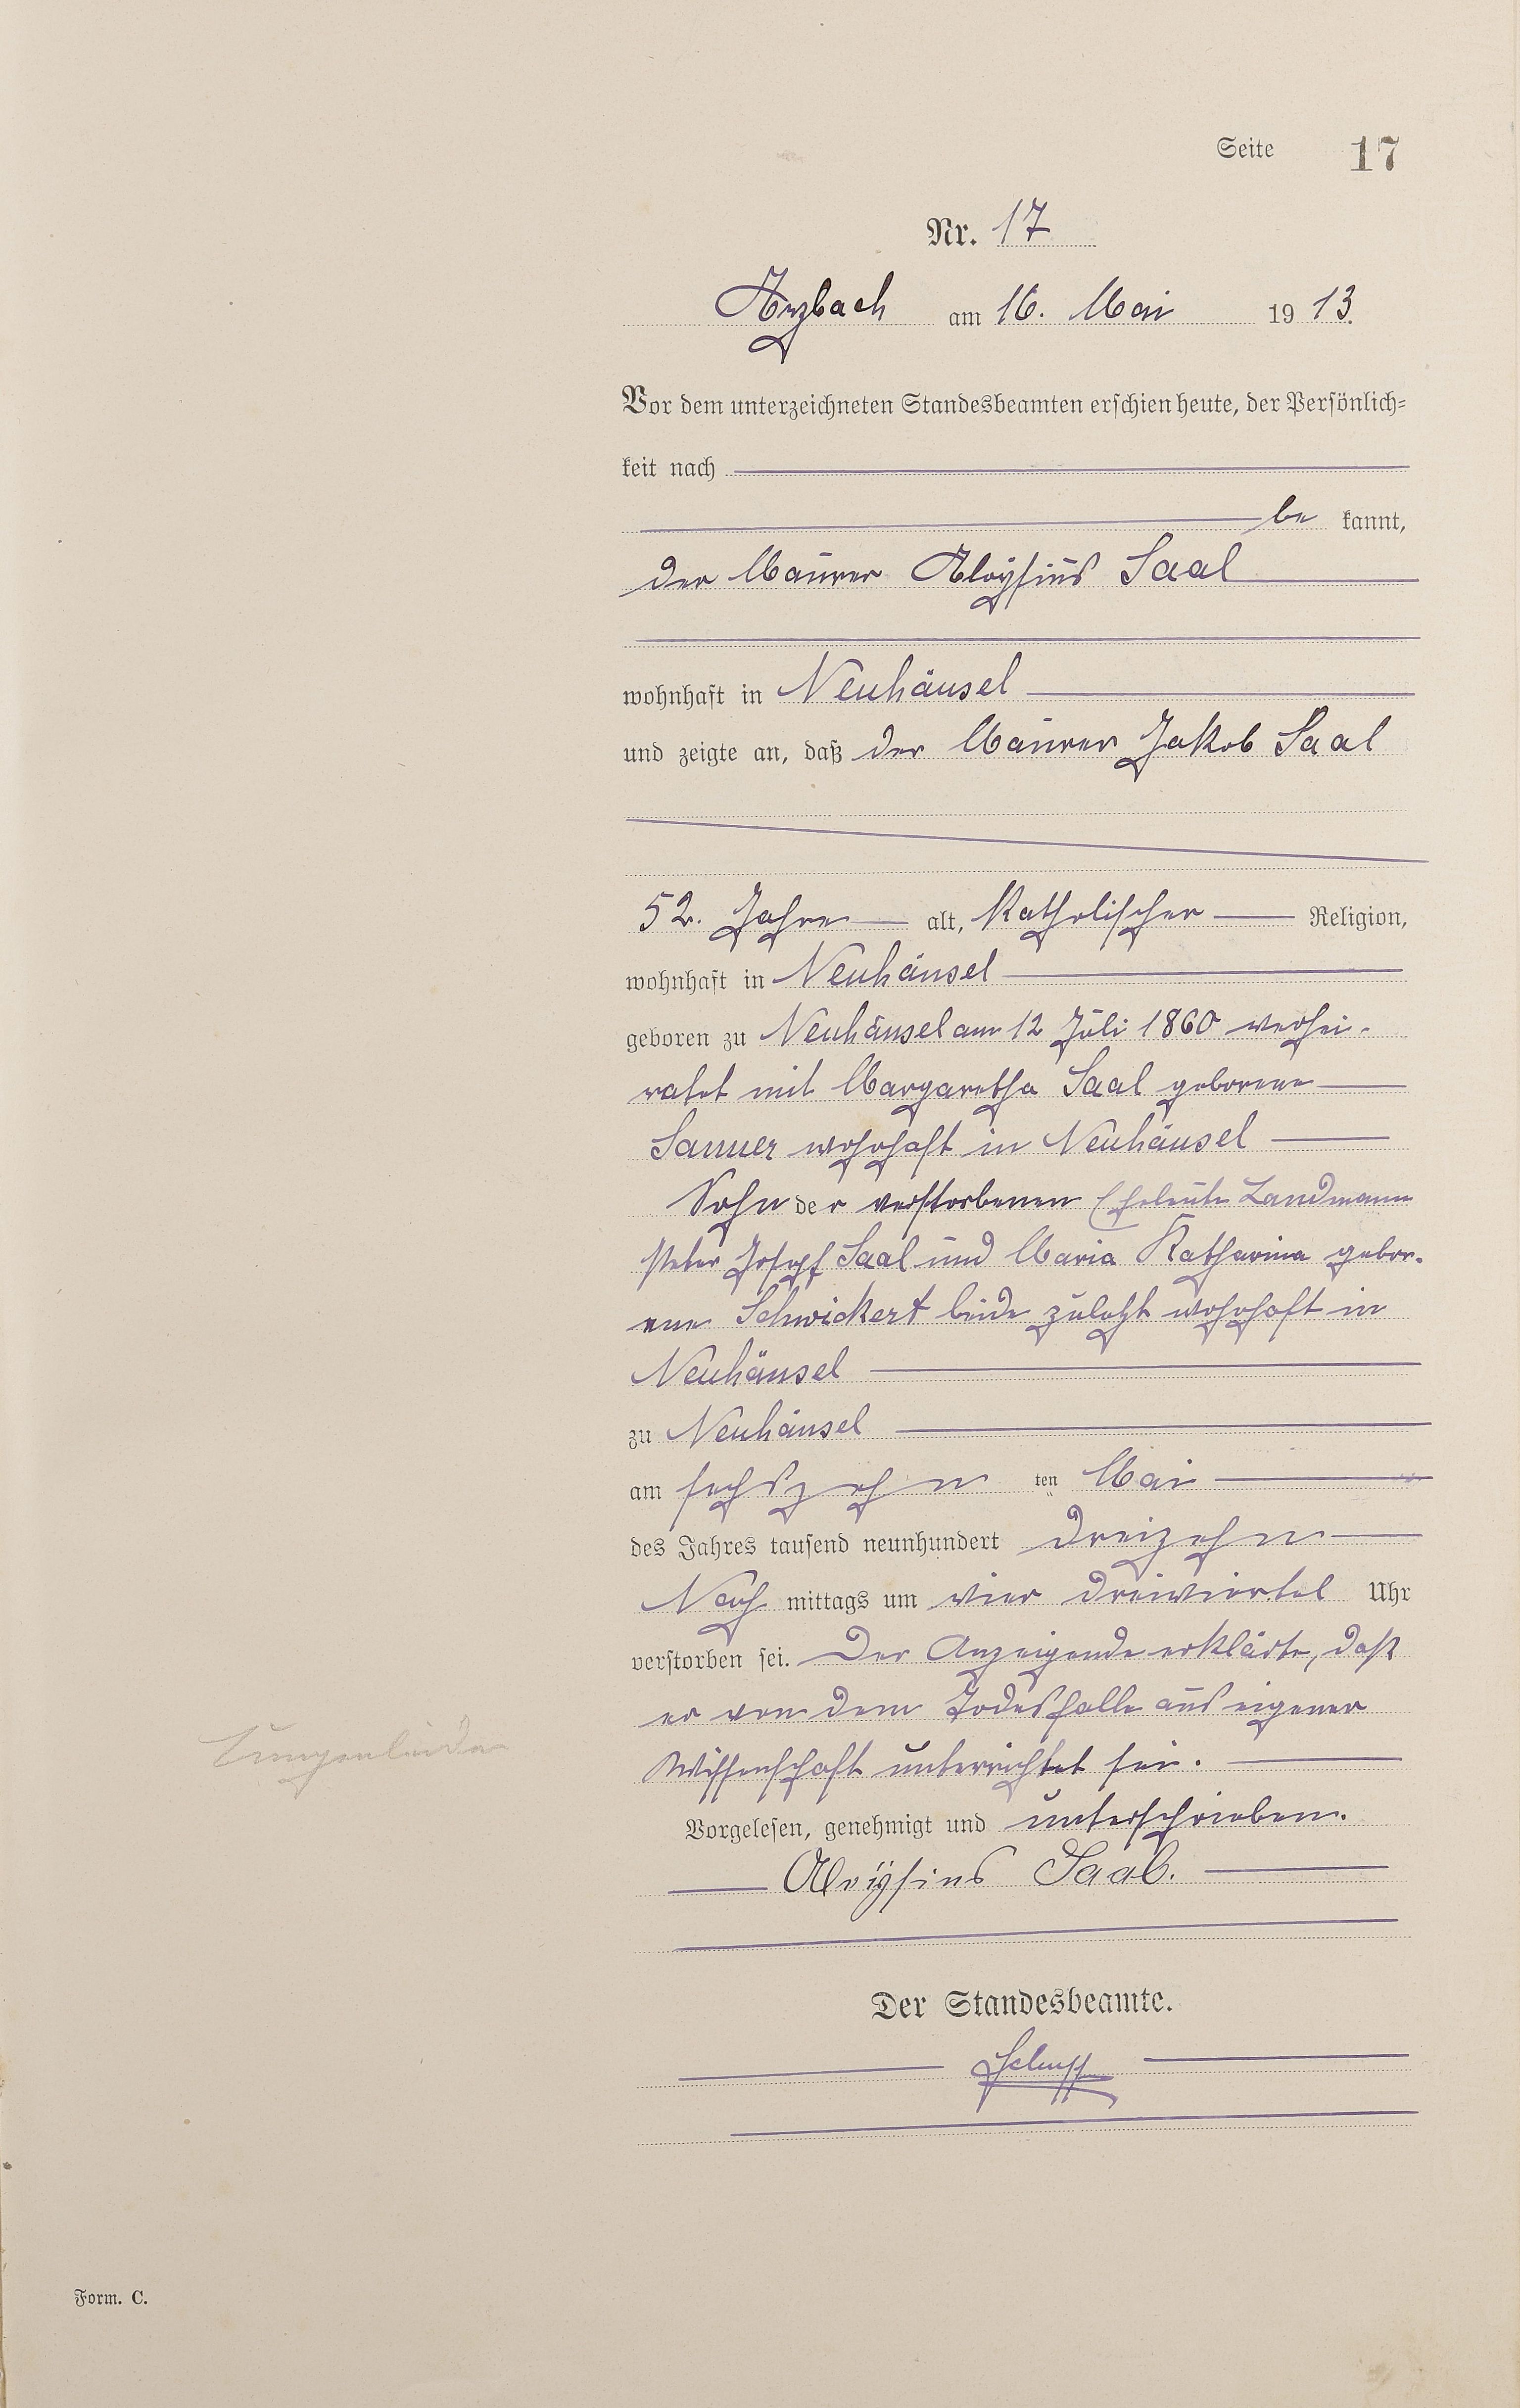 Seite 17
Nr. 17
Arzbach am 16. Mai 1913.
Vor dem unterzeichneten Standesbeamten erschien heute, der Persönlich-
keit nach
be kannt,
der Maurer Aloysius Saal
wohnhaft in Neuhäusel
und zeigte an, daß der Maurer Jakob Saal
52. Jahre alt, Katholischer Religion,
wohnhaft in Neuhäusel
geboren zu Neuhäusel am 12 Juli 1860 verhei-
ratet mit Margaretha Saal geborene
Sanner wohnhaft in Neuhäusel
Sohn der verstorbenen Eheleute Landmann
Peter Josef Saal und Maria Katharina gebor-
ene Schwickert beide zuletzt wohnhaft in
Neuhäusel
zu Neuhäusel
am sechszehn ten Mai
des Jahres tausend neunhundert dreizehn
Nach mittags um vier dreiviertel Uhr
verstorben sei. Der Anzeigende erklärte, daß
er von dem Todesfalle aus eigener
Lungenleiden
Wissenschaft unterrichtet sei.
Vorgelesen, genehmigt und unterschrieben.
Aloÿsius Saal.
Der Standesbeamte.
Form. C.